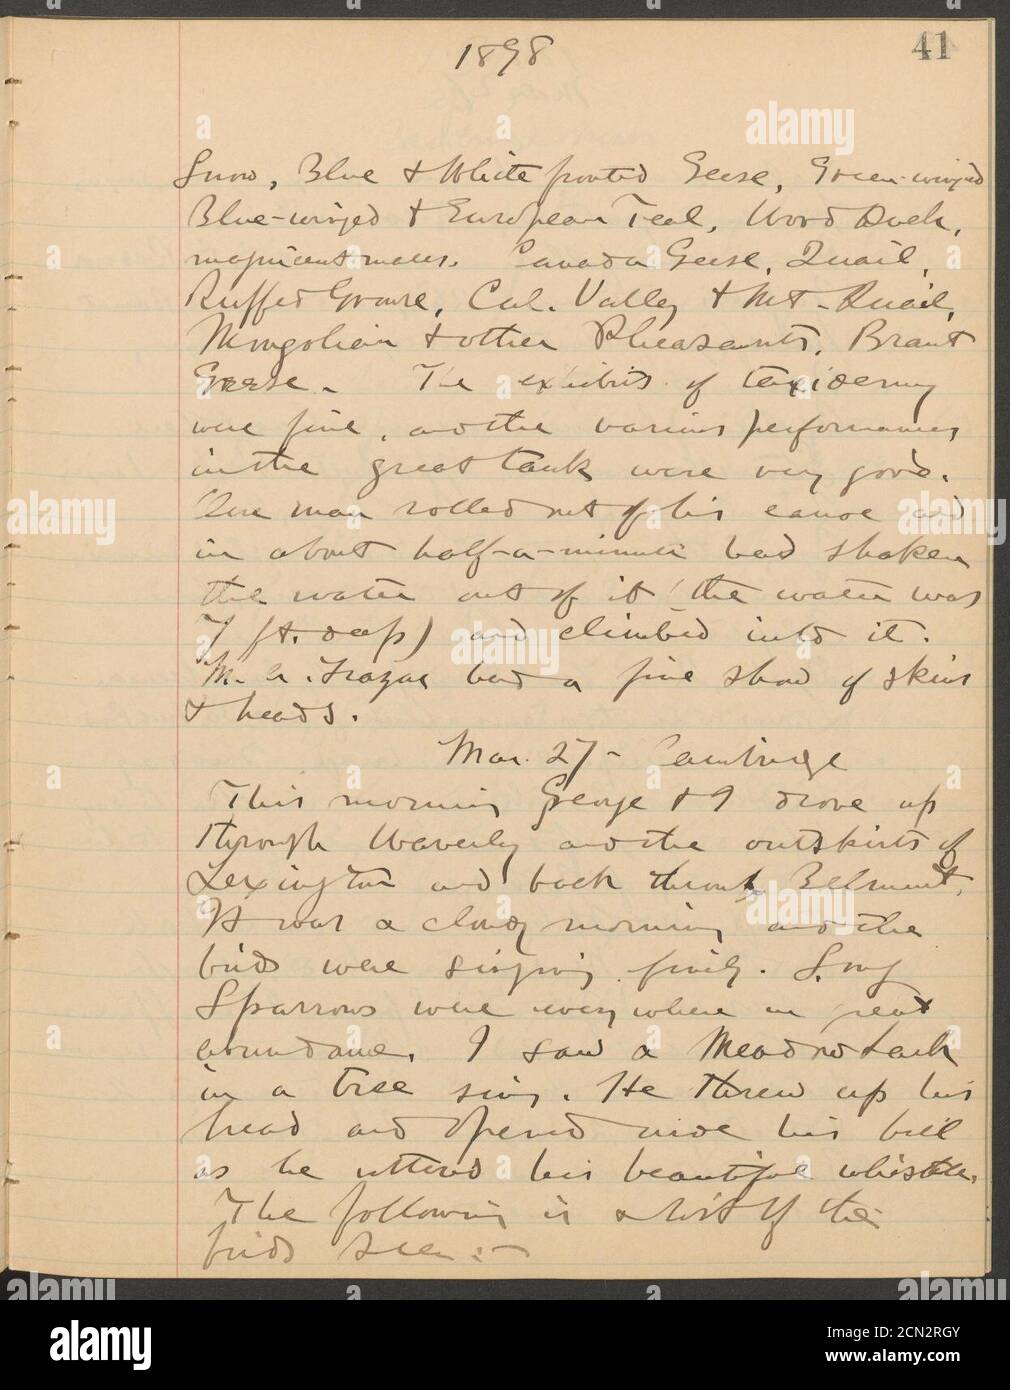 1898
41
Snow, Blue & White fronted Geese, Green-winged
Blue-winged & European Teal, Wood Duck,
magnificent males. Canada Geese, Quail,
Ruffed Grouse, Cal. Valley & Mt. Quail,
Mongolian & other Pheasants, Brant
Geese. The exhibits of taxidermy
were fine, and the various performances
in the great tank were very good.
One man rolled out of his canoe and
in about half-a-minute had shaken
the water out of it (the water was
7 ft. deep) and climbed into it.
M. A. Frazar had a fine show of skins
& heads.
Mar. 27 - Cambridge
This morning George & I drove up
through Waverly and the outskirts of
Lexington and back through Belmont.
It was a cloudy morning and the
birds were singing finely. Song
Sparrows were every where in great
abundance. I saw a Meadow Lark
in a tree sing. He threw up his
head and opened wide his bill
as he uttered his beautiful whistle.
The following is a list of the
birds seen:-
alamy
Image ID: 2CN2RGY
www.alamy.com